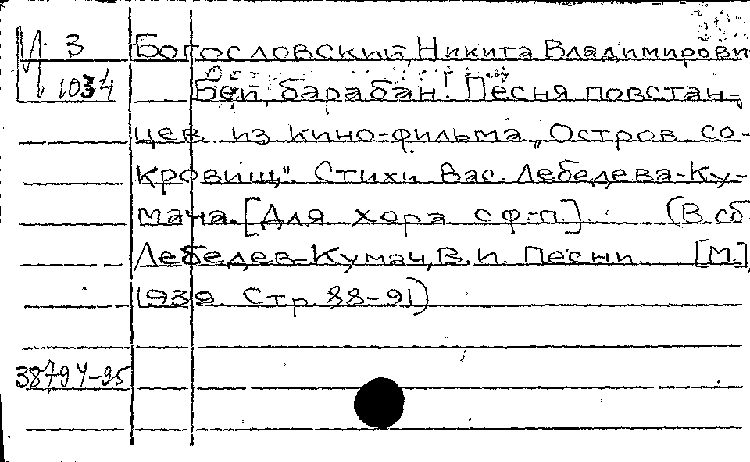 И 3
1034
Богословский, Никита Владимирови
Бей, барабан! Песня повстан-
цев из кино-фильма „Остров со-
кровищ". Стихи Вас. Лебедева-Ку-
мача. [Для хора с ф-п.] (В сб
Лебедев-Кумач, В. И. Песни [М.]
1939. Стр. 88-91)